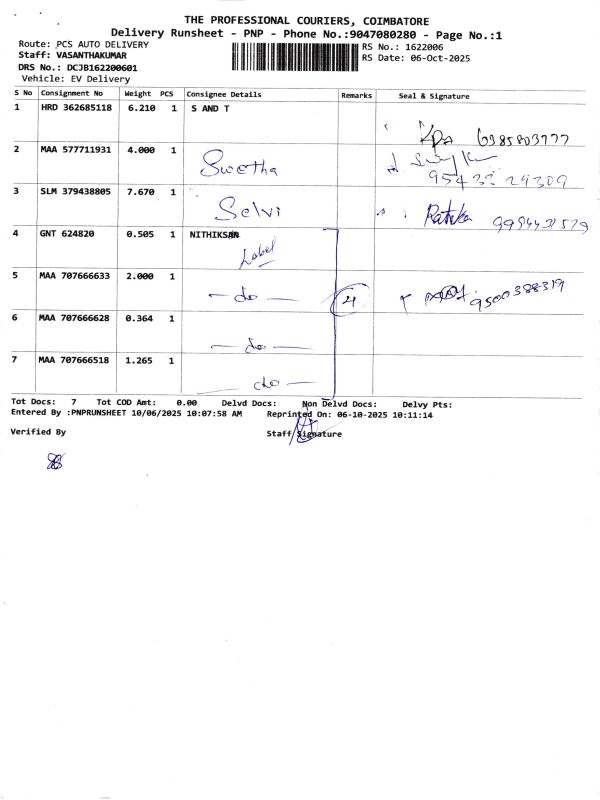 THE PROFESSIONAL COURIERS, COIMBATORE
Delivery Runsheet - PNP - Phone No.:9047080280 - Page No.:1
Route: PCS AUTO DELIVERY
Staff: VASANTHAKUMAR
DRS No.: DCJB162200601
Vehicle: EV Delivery
RS No.: 1622006
RS Date: 06-Oct-2025
S No Consignment No Weight PCS Consignee Details Remarks Seal & Signature
1 HRD 362685118 6.210 1 S AND T
6385803777
2 MAA 577711931 4.000 1 Swetha
95433 29309
3 SLM 379438805 7.670 1 Selvi
4 GNT 624820 0.505 1 NITHIKSAN
Label
5 MAA 707666633 2.000 1 — do — 4 9500388319
6 MAA 707666628 0.364 1 — do —
7 MAA 707666518 1.265 1 — do —
Tot Docs: 7 Tot COD Amt: 0.00 Delvd Docs: Non Delvd Docs: Delvy Pts:
Entered By :PNPRUNSHEET 10/06/2025 10:07:58 AM Reprinted On: 06-10-2025 10:11:14
Verified By Staff Signature